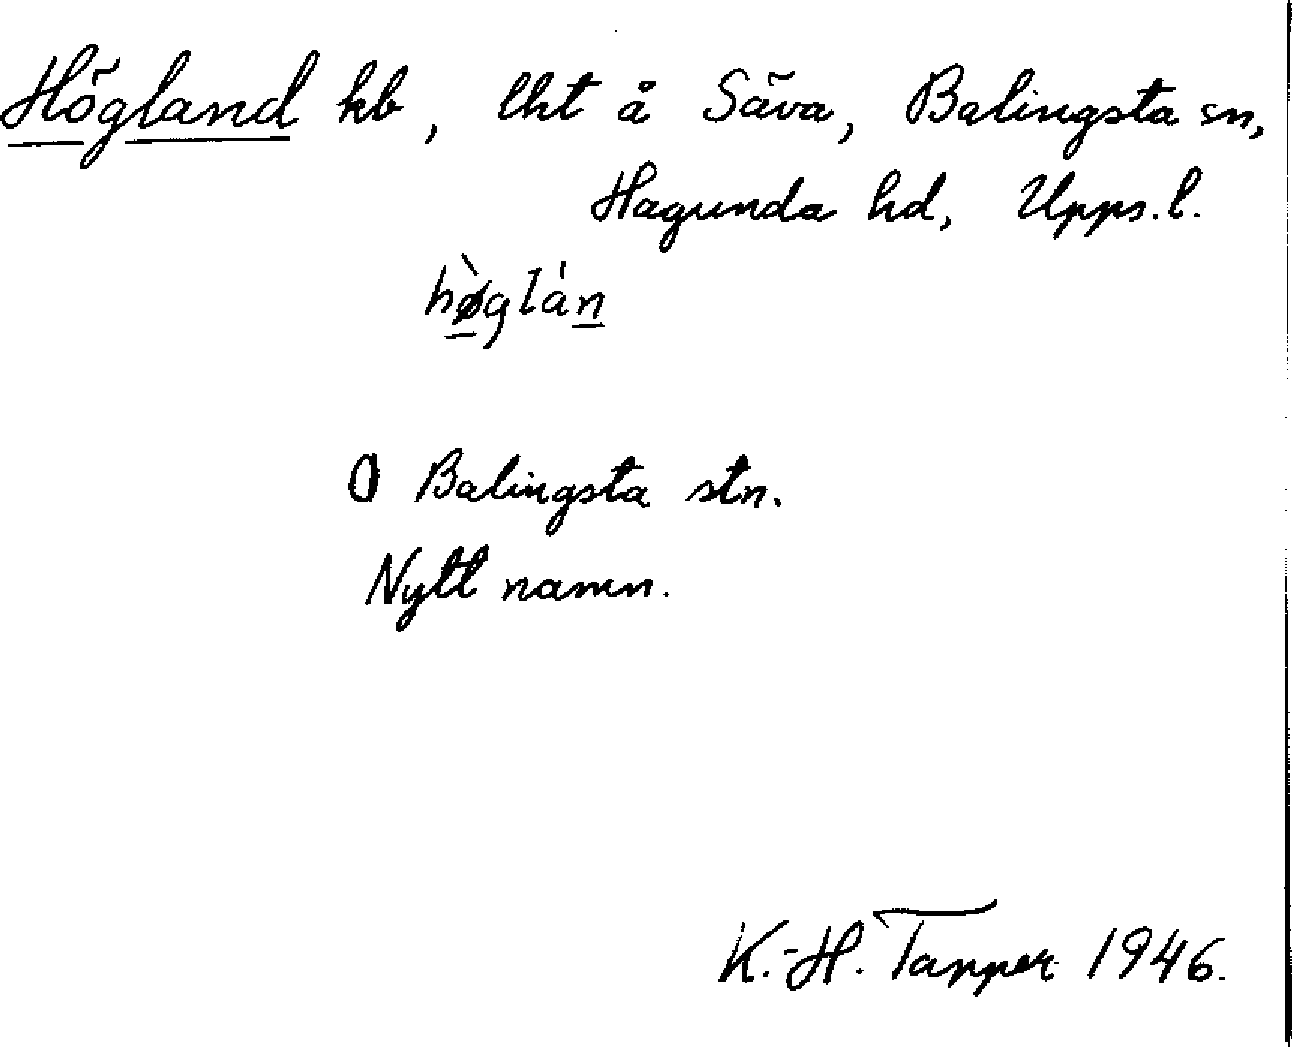 Högland kb, lht å Säva, Balingsta sn,
Hagunda hd, Upps.l.
hø̀glán
O Balingsta stn.
Nytt namn.
K.-H. Tapper 1946.